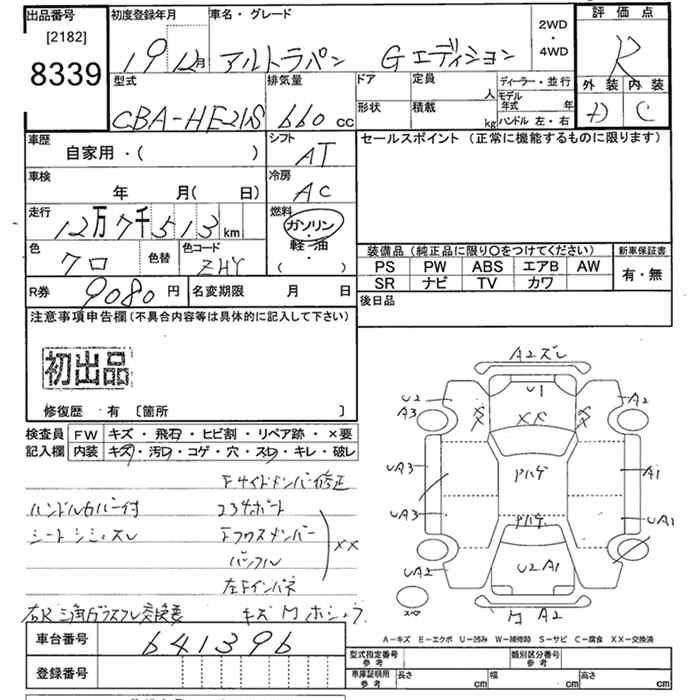 出品番号 初度登録年月 車名・グレード 2WD・4WD 評価点
[2182]
8339 19 12月 アルトラパン Gエディション R
型式 排気量 ドア 定員 人 ディーラー・並行 外装 内装
CBA-HE21S 660 cc 形状 積載 kg モデル年式 年 ハンドル 左・右 D C
車歴 シフト セールスポイント (正常に機能するものに限ります)
自家用・( ) AT
車検 冷房
年 月( 日) AC
走行 燃料
12万7千513 km ガソリン・軽油
色 色替 色コード ( )
クロ ZHY
装備品 (純正品に限り○をつけてください) 新車保証書
PS PW ABS エアB AW 有・無
SR ナビ TV カワ
R券 9080 円 名変期限 月 日 後日品
注意事項申告欄 (不具合内容等は具体的に記入して下さい)
初出品
修復歴 有 〔箇所 〕
検査員 FW キズ・飛石・ヒビ割・リペア跡・×要
記入欄 内装 キズ・汚レ・コゲ・穴・スレ・キレ・破レ
Fサイドメンバー修正
ハンドルカバー付 コアサポート
シート シミ、スレ Fクロスメンバー
バックパネル ××
左Fインパネ
右R三角ガラスフレ交換要 キズ
車台番号 641396
登録番号
A2ズレ
U1
U2 A2
A3 ××
UA3 Pハゲ A1
UA3 UA1
Pハゲ
UA2 U2A1
スペア A2
A-キズ E-エクボ U-凹み W-補修跡 S-サビ C-腐食 XX-交換済
型式指定番号 参考 類別区分番号 参考
車庫証明用 参考 長さ cm 幅 cm 高さ cm